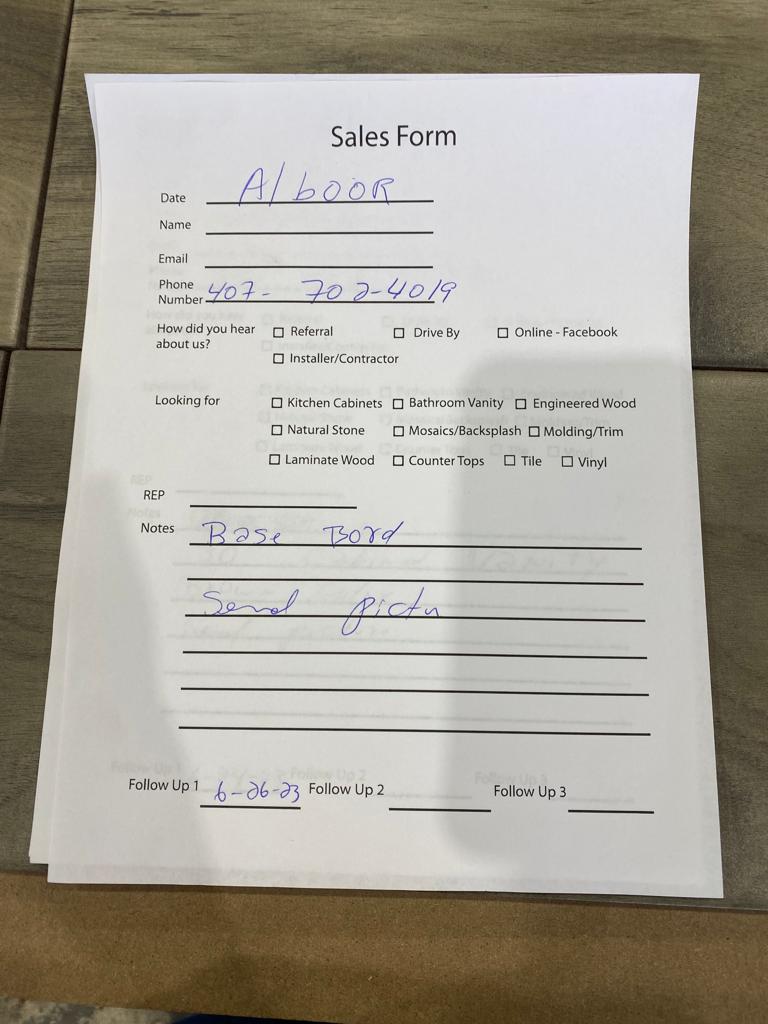 Sales Form
Date A/booR
Name
Email
Phone
Number 407- 702-4019
How did you hear ☐ Referral ☐ Drive By ☐ Online - Facebook
about us?
☐ Installer/Contractor
Looking for ☐ Kitchen Cabinets ☐ Bathroom Vanity ☐ Engineered Wood
☐ Natural Stone ☐ Mosaics/Backsplash ☐ Molding/Trim
☐ Laminate Wood ☐ Counter Tops ☐ Tile ☐ Vinyl
REP
Notes Base Bord
Send pictu
Follow Up 1 6-26-23 Follow Up 2 Follow Up 3